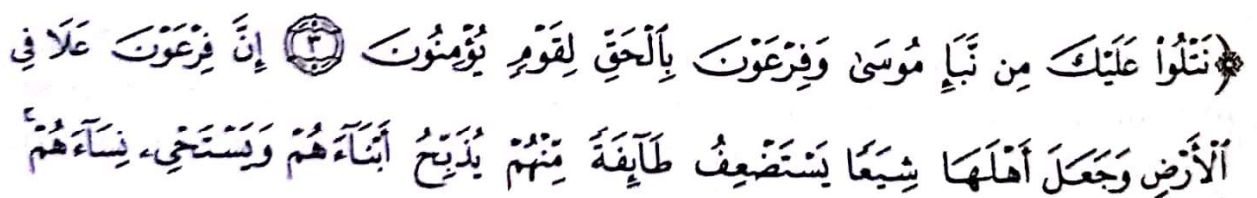 ﴿نَتْلُوا۟ عَلَيْكَ مِن نَّبَإِ مُوسَىٰ وَفِرْعَوْنَ بِٱلْحَقِّ لِقَوْمٍ يُؤْمِنُونَ ٣ إِنَّ فِرْعَوْنَ عَلَا فِى
ٱلْأَرْضِ وَجَعَلَ أَهْلَهَا شِيَعًا يَسْتَضْعِفُ طَآئِفَةً مِّنْهُمْ يُذَبِّحُ أَبْنَآءَهُمْ وَيَسْتَحْىِۦ نِسَآءَهُمْ ۚ